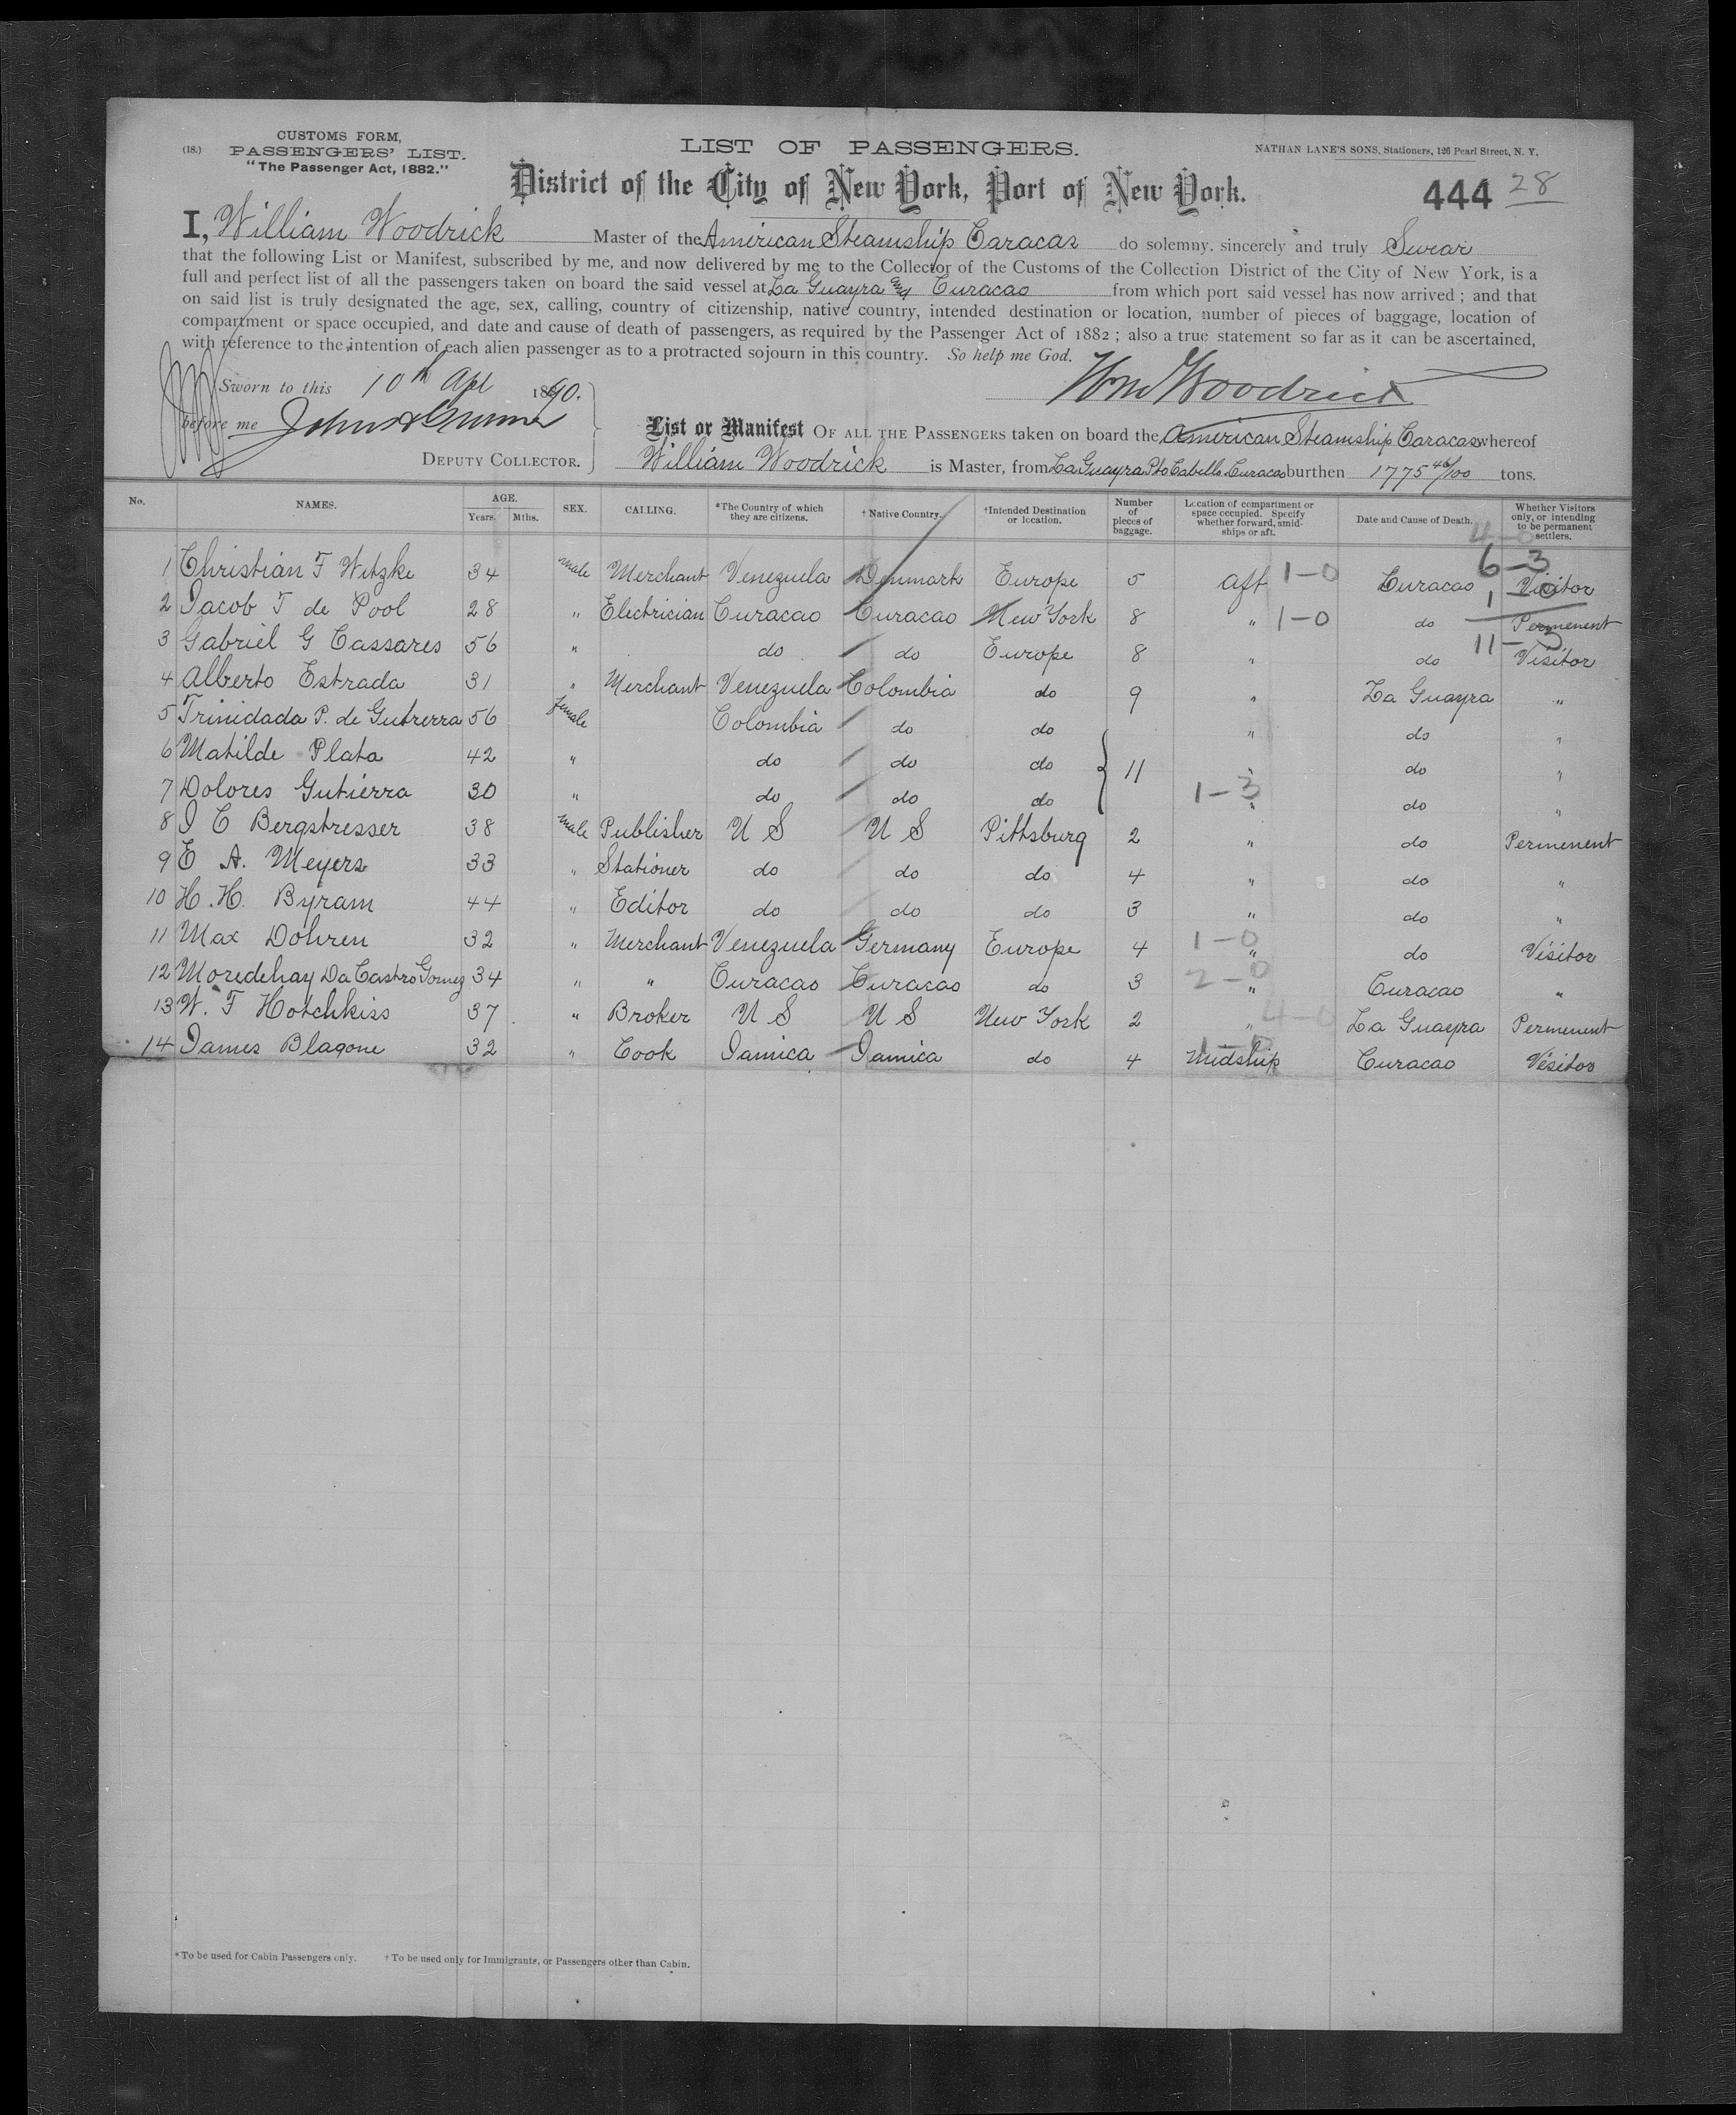 (18.)
CUSTOMS FORM,
PASSENGERS' LIST.
"The Passenger Act, 1882."
LIST OF PASSENGERS.
NATHAN LANE'S SONS, Stationers, 126 Pearl Street, N. Y.
District of the City of New York, Port of New York.
444 28
I, William Woodrick Master of the American Steamship Caracas do solemny, sincerely and truly Swear
that the following List or Manifest, subscribed by me, and now delivered by me to the Collector of the Customs of the Collection District of the City of New York, is a
full and perfect list of all the passengers taken on board the said vessel at La Guayra and Curacao from which port said vessel has now arrived ; and that
on said list is truly designated the age, sex, calling, country of citizenship, native country, intended destination or location, number of pieces of baggage, location of
compartment or space occupied, and date and cause of death of passengers, as required by the Passenger Act of 1882 ; also a true statement so far as it can be ascertained,
with reference to the intention of each alien passenger as to a protracted sojourn in this country. So help me God.
Sworn to this 10th Apl 1890.
Wm Woodrick
before me John
DEPUTY COLLECTOR.
List or Manifest OF ALL THE PASSENGERS taken on board the American Steamship Caracas whereof
William Woodrick is Master, from La Guayra Pto Cabello Curacao burthen 1775 46/100 tons.
No. NAMES. AGE. Years. Mths. SEX. CALLING. *The Country of which they are citizens. †Native Country. †Intended Destination or location. Number of pieces of baggage. Location of compartment or space occupied. Specify whether forward, amidships or aft. Date and Cause of Death. Whether Visitors only, or intending to be permanent settlers.
4-0
6-3
1 Christian F Witzke 34 male Merchant Venezuela Denmark Europe 5 aft 1-0 Curacao Visitor
1-0
2 Jacob T de Pool 28 " Electrician Curacao Curacao New York 8 " 1-0 do Permenent
11-3
3 Gabriel G Cassares 56 " do do Europe 8 " do Visitor
4 Alberto Estrada 31 " Merchant Venezuela Colombia do 9 " La Guayra "
5 Trinidada P. de Gutrerra 56 female Colombia do do " do "
6 Matilde Plata 42 " do do do 11 " do "
7 Dolores Gutierra 30 " do do do 1-3 " do "
8 J C Bergstresser 38 male Publisher U S U S Pittsburg 2 " do Permenent
9 E A. Meyers 33 " Stationer do do do 4 " do "
10 H. H. Byram 44 " Editor do do do 3 " do "
11 Max Dohren 32 " Merchant Venezuela Germany Europe 4 1-0 " do Visitor
12 Moredehay Da Castro Gomez 34 " " Curacao Curacao do 3 2-0 " Curacao "
13 W. F Hotchkiss 37 " Broker U S U S New York 2 " 4-0 La Guayra Permenent
14 James Blagone 32 " Cook Jamica Jamica do 4 Midship Curacao Visitor
*To be used for Cabin Passengers only. †To be used only for Immigrants, or Passengers other than Cabin.